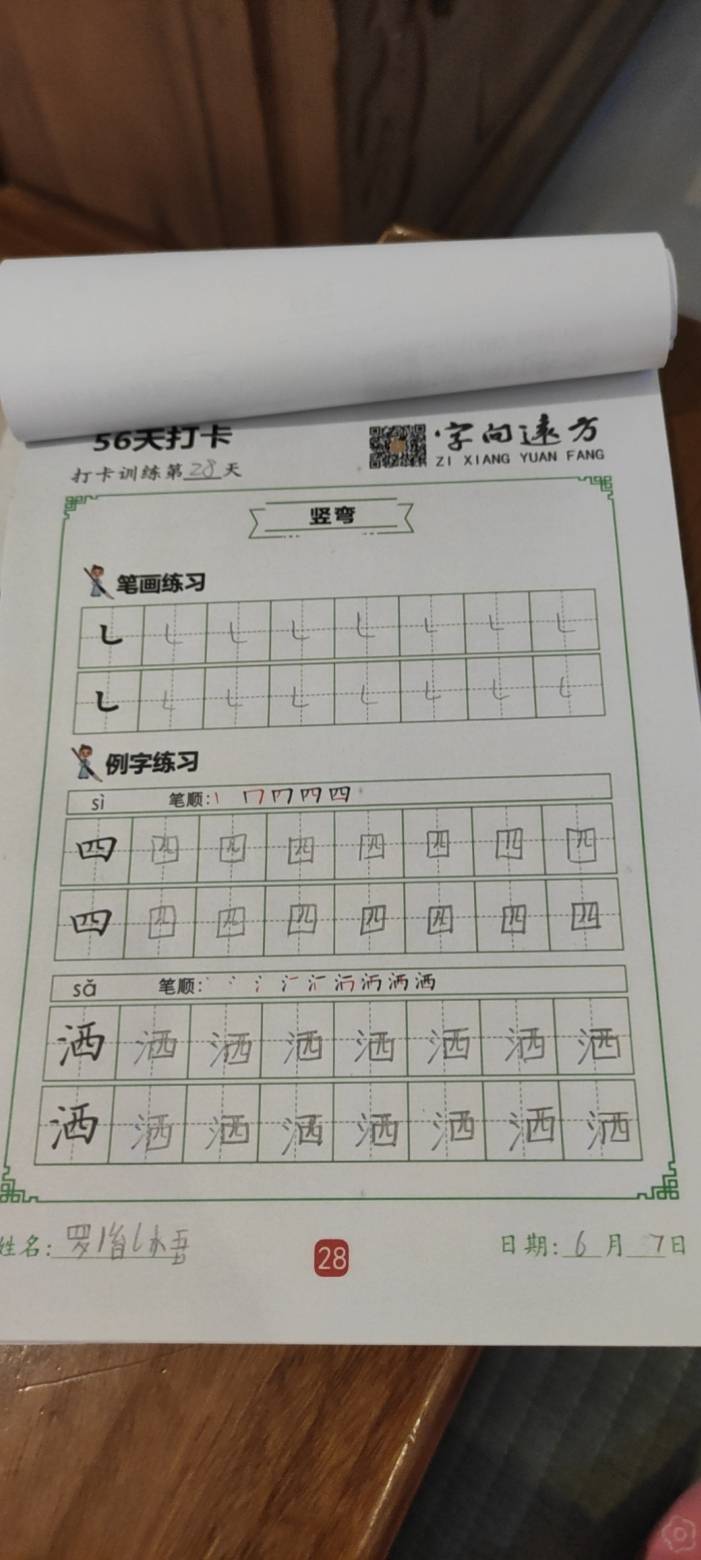 56天打卡
字向远方
ZI XIANG YUAN FANG
打卡训练第28天
竖弯
笔画练习
例字练习
sì 笔顺:
四 四 四 四 四 四 四 四
四 四 四 四 四 四 四 四
sǎ 笔顺:
洒 洒 洒 洒 洒 洒 洒 洒
洒 洒 洒 洒 洒 洒 洒 洒
姓名: 罗
28
日期: 6月7日